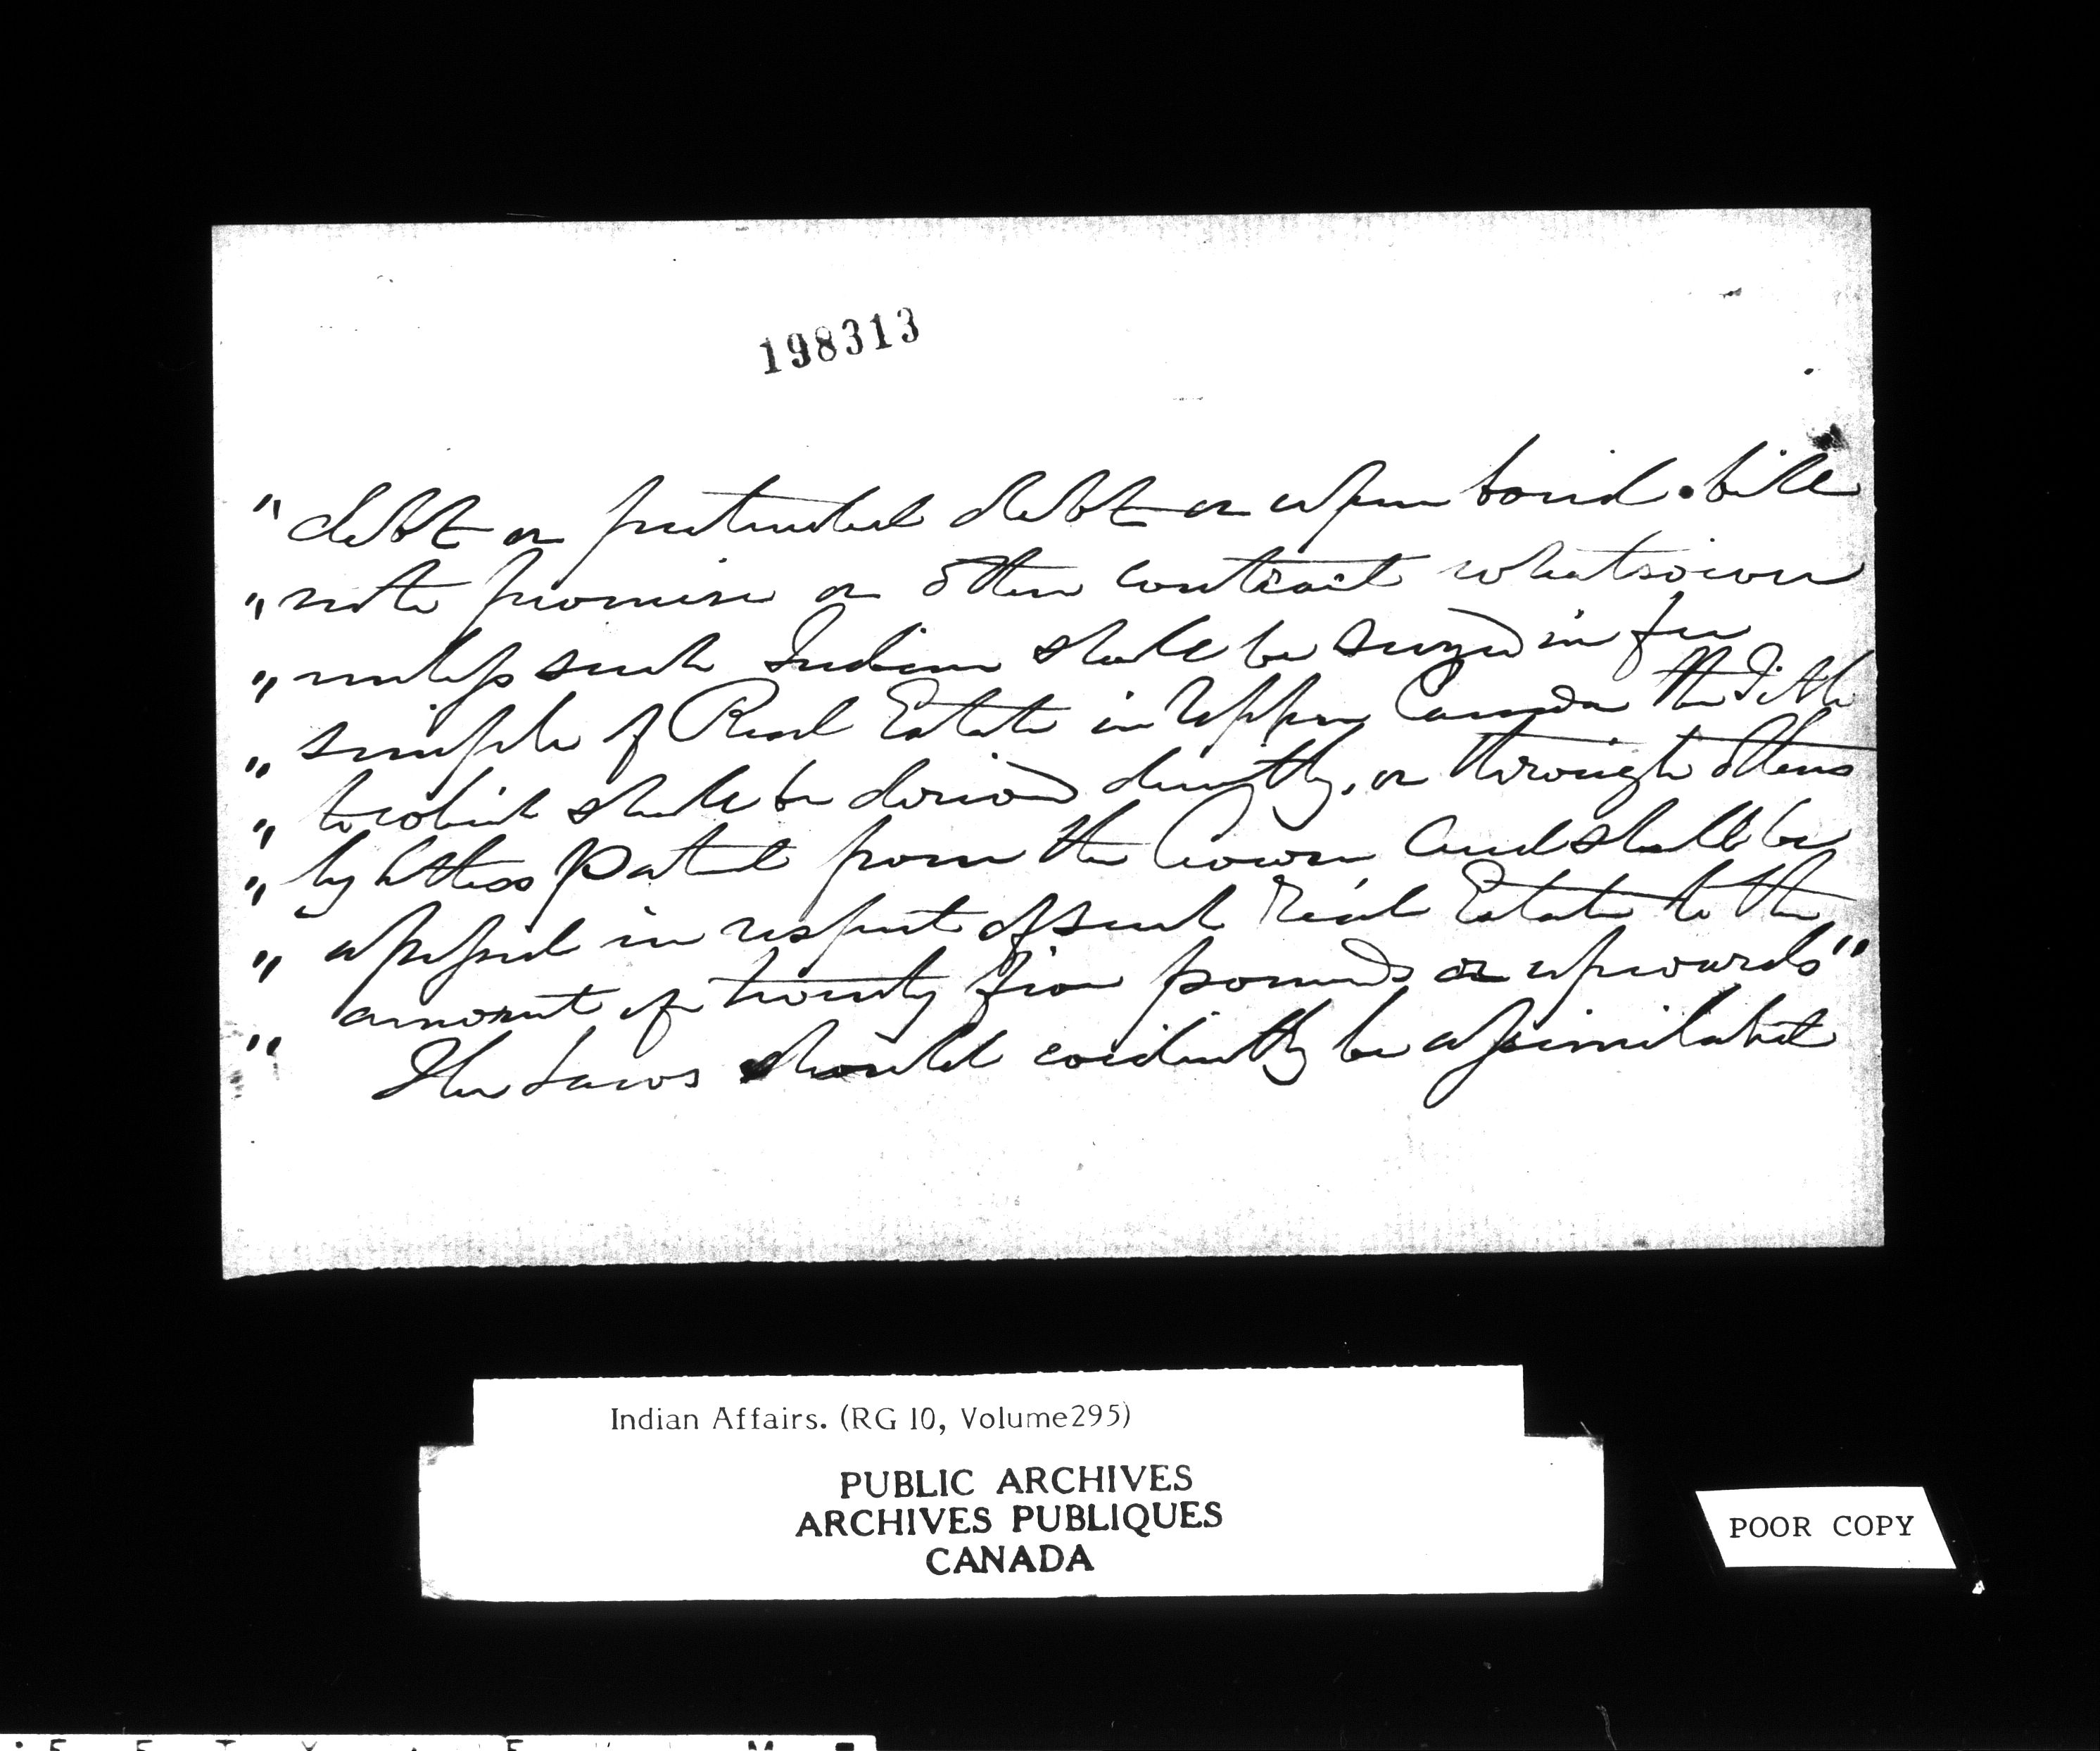 198313
" debt or pretended debt or upon bond. bill
" note promise or other contract whatsoever
" unless such Indian shall be seized in fee
" simple of Real Estate in Upper Canada the Title
" to which shall be derived directly, or through others
" by letters Patent from the Crown and shall be
" assessed in respect of such Real Estate to the
" amount of twenty five pounds or upwards"
" The Laws should evidently be assimilated
Indian Affairs. (RG 10, Volume295)
PUBLIC ARCHIVES
ARCHIVES PUBLIQUES
CANADA
POOR COPY